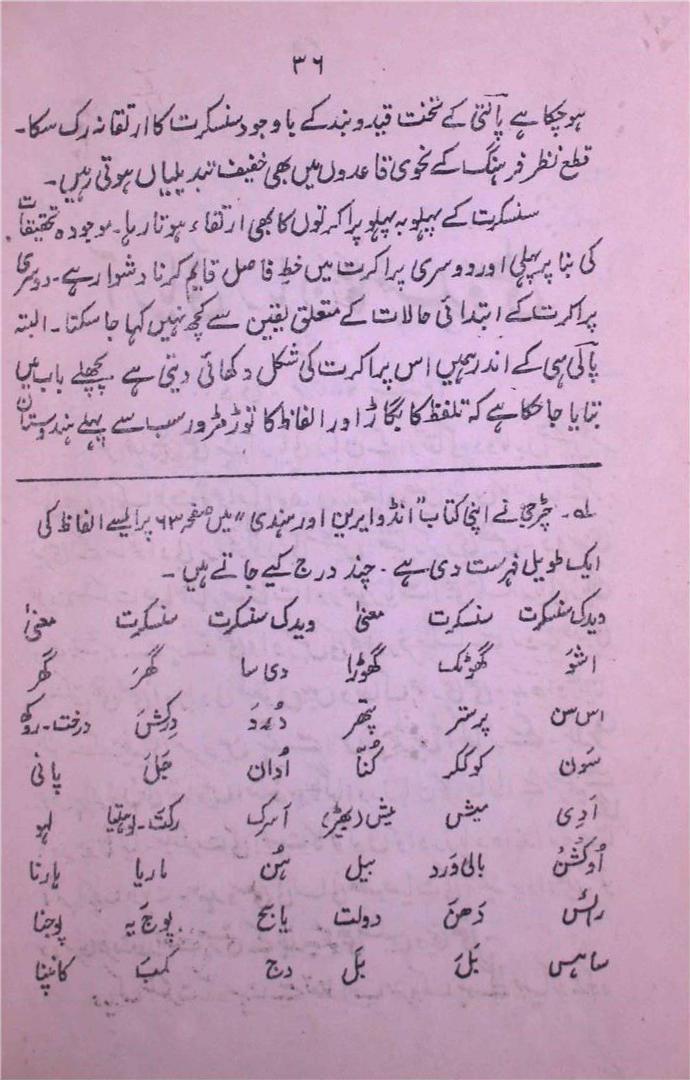 ۳۶
ہو چکا ہے پاننی کے سخت قید و بند کے باوجود سنسکرت کا ارتقا نہ رک سکا۔
قطع نظر فرہنگ کے نحوی قاعدوں میں بھی خفیف تبدیلیاں ہوتی رہیں۔
سنسکرت کے پہلو بہ پہلو پراکرتوں کا بھی ارتقاء ہوتا رہا۔ موجودہ تحقیقات
کی بنا پر پہلی اور دوسری پراکرت میں خطِ فاصل قایم کرنا دشوار ہے۔ دوسری
پراکرت کے ابتدائی حالات کے متعلق یقین سے کچھ نہیں کہا جا سکتا۔ البتہ
پالی ہی کے اندر ہمیں اس پراکرت کی شکل دکھائی دیتی ہے پچھلے باب میں
بتایا جا چکا ہے کہ تلفظ کا بگاڑ اور الفاظ کا توڑ مڑور سب سے پہلے ہندوستان
لہ۔ چٹرجی نے اپنی کتاب "انڈو ایرین اور ہندی" میں صفحہ ۶۳ پر ایسے الفاظ کی
ایک طویل فہرست دی ہے۔ چند درج کیے جاتے ہیں۔
ویدک سنسکرت سنسکرت معنیٰ ویدک سنسکرت سنسکرت معنیٰ
اشوَ گھوٹک گھوڑا دی سا گھرَ گھر
اس سن پرستر پتھر دُرد دِرکشَ درخت۔روکھ
سَون کوککر کُتّا اُدان جَلَ پانی
اَدِی میش میش (بھیڑ) اَسرک رکت۔لوہتیا لہو
اُوکشُن بالی وَرد بیل ہُن ماریا مارنا
رائس دَھنَ دولت یایج پوجَ یہ پوجنا
ساہس بَلَ بَلَ وج کمپَ کانپنا